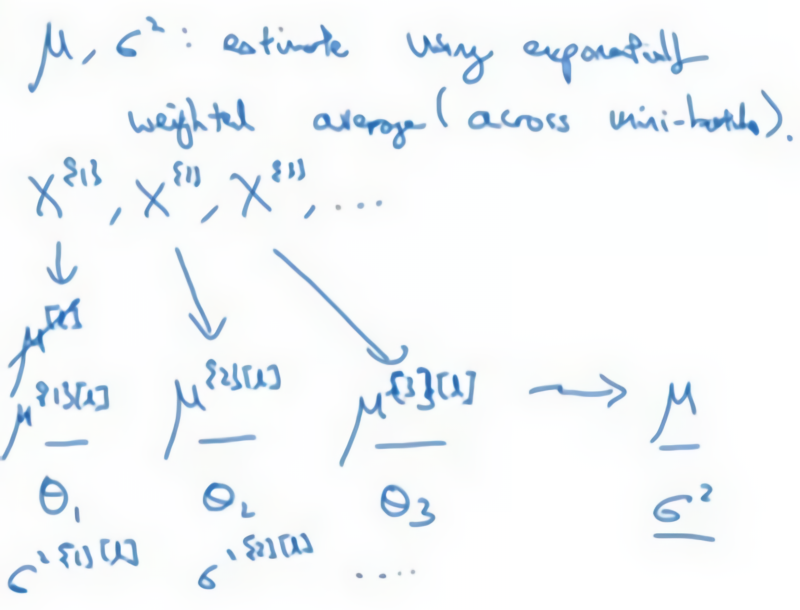 μ, σ²: estimate using exponentially
weighted average (across mini-batches).
X^{1}, X^{2}, X^{3}, ....
μ^[l]
μ^{1}[l] μ^{2}[l] μ^{3}[l] → μ
θ₁ θ₂ θ₃ σ²
σ²^{1}[l] σ²^{2}[l] ....